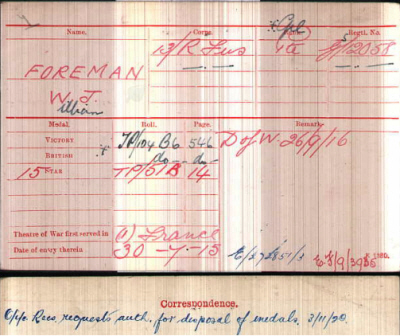 Name. Corps. Rank. Regtl. No.
* Cpl
13/R Fus Pte G/12058
FOREMAN
W. J.
illiam
Medal. Roll. Page. Remarks
VICTORY * TP/104 B6 546 D of W. 26/9/16
BRITISH do do
15 STAR TP/51B 14
Theatre of War first served in (1) France
Date of entry therein 30-7-15
Correspondence.
O i/c Recs requests auth. for disposal of medals. 3/11/20.